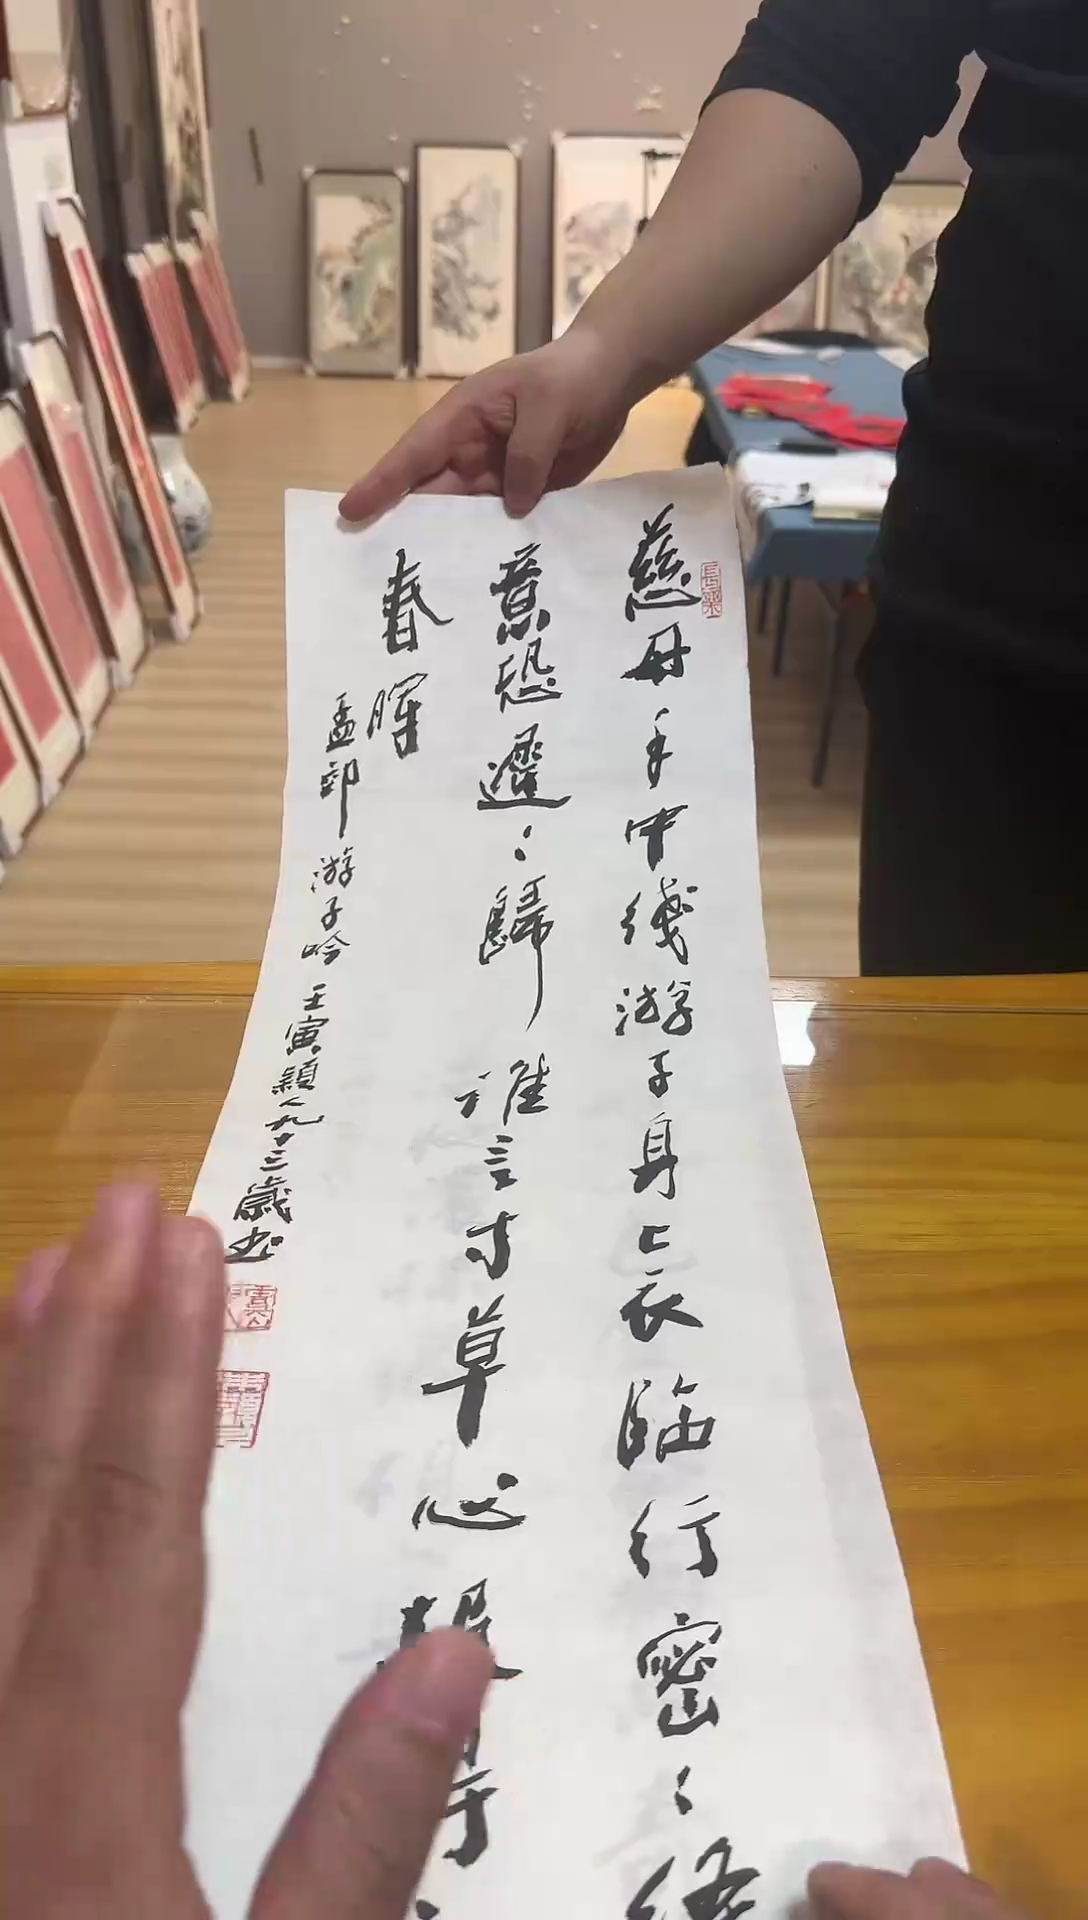 長樂
慈母手中綫游子身上衣临行密〻缝
意恐遲〻歸誰言寸草心
春暉
孟郊游子吟壬寅穎人九十三歲书